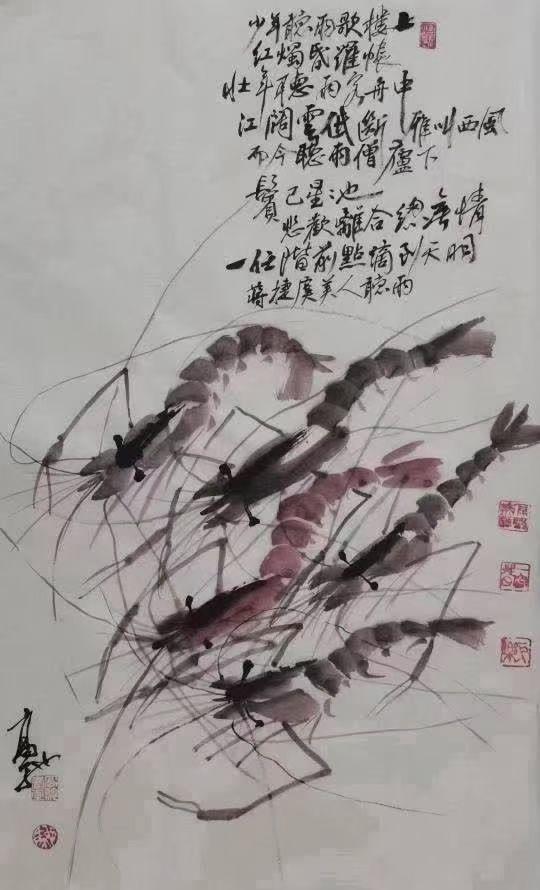 少年聽雨歌樓上
红燭昏羅帳
壮年聽雨客舟中
江阔雲低斷雁叫西風
而今聽雨僧廬下
鬢已星
悲歡離合總無情
一任階前點滴到天明
蔣捷虞美人聽雨